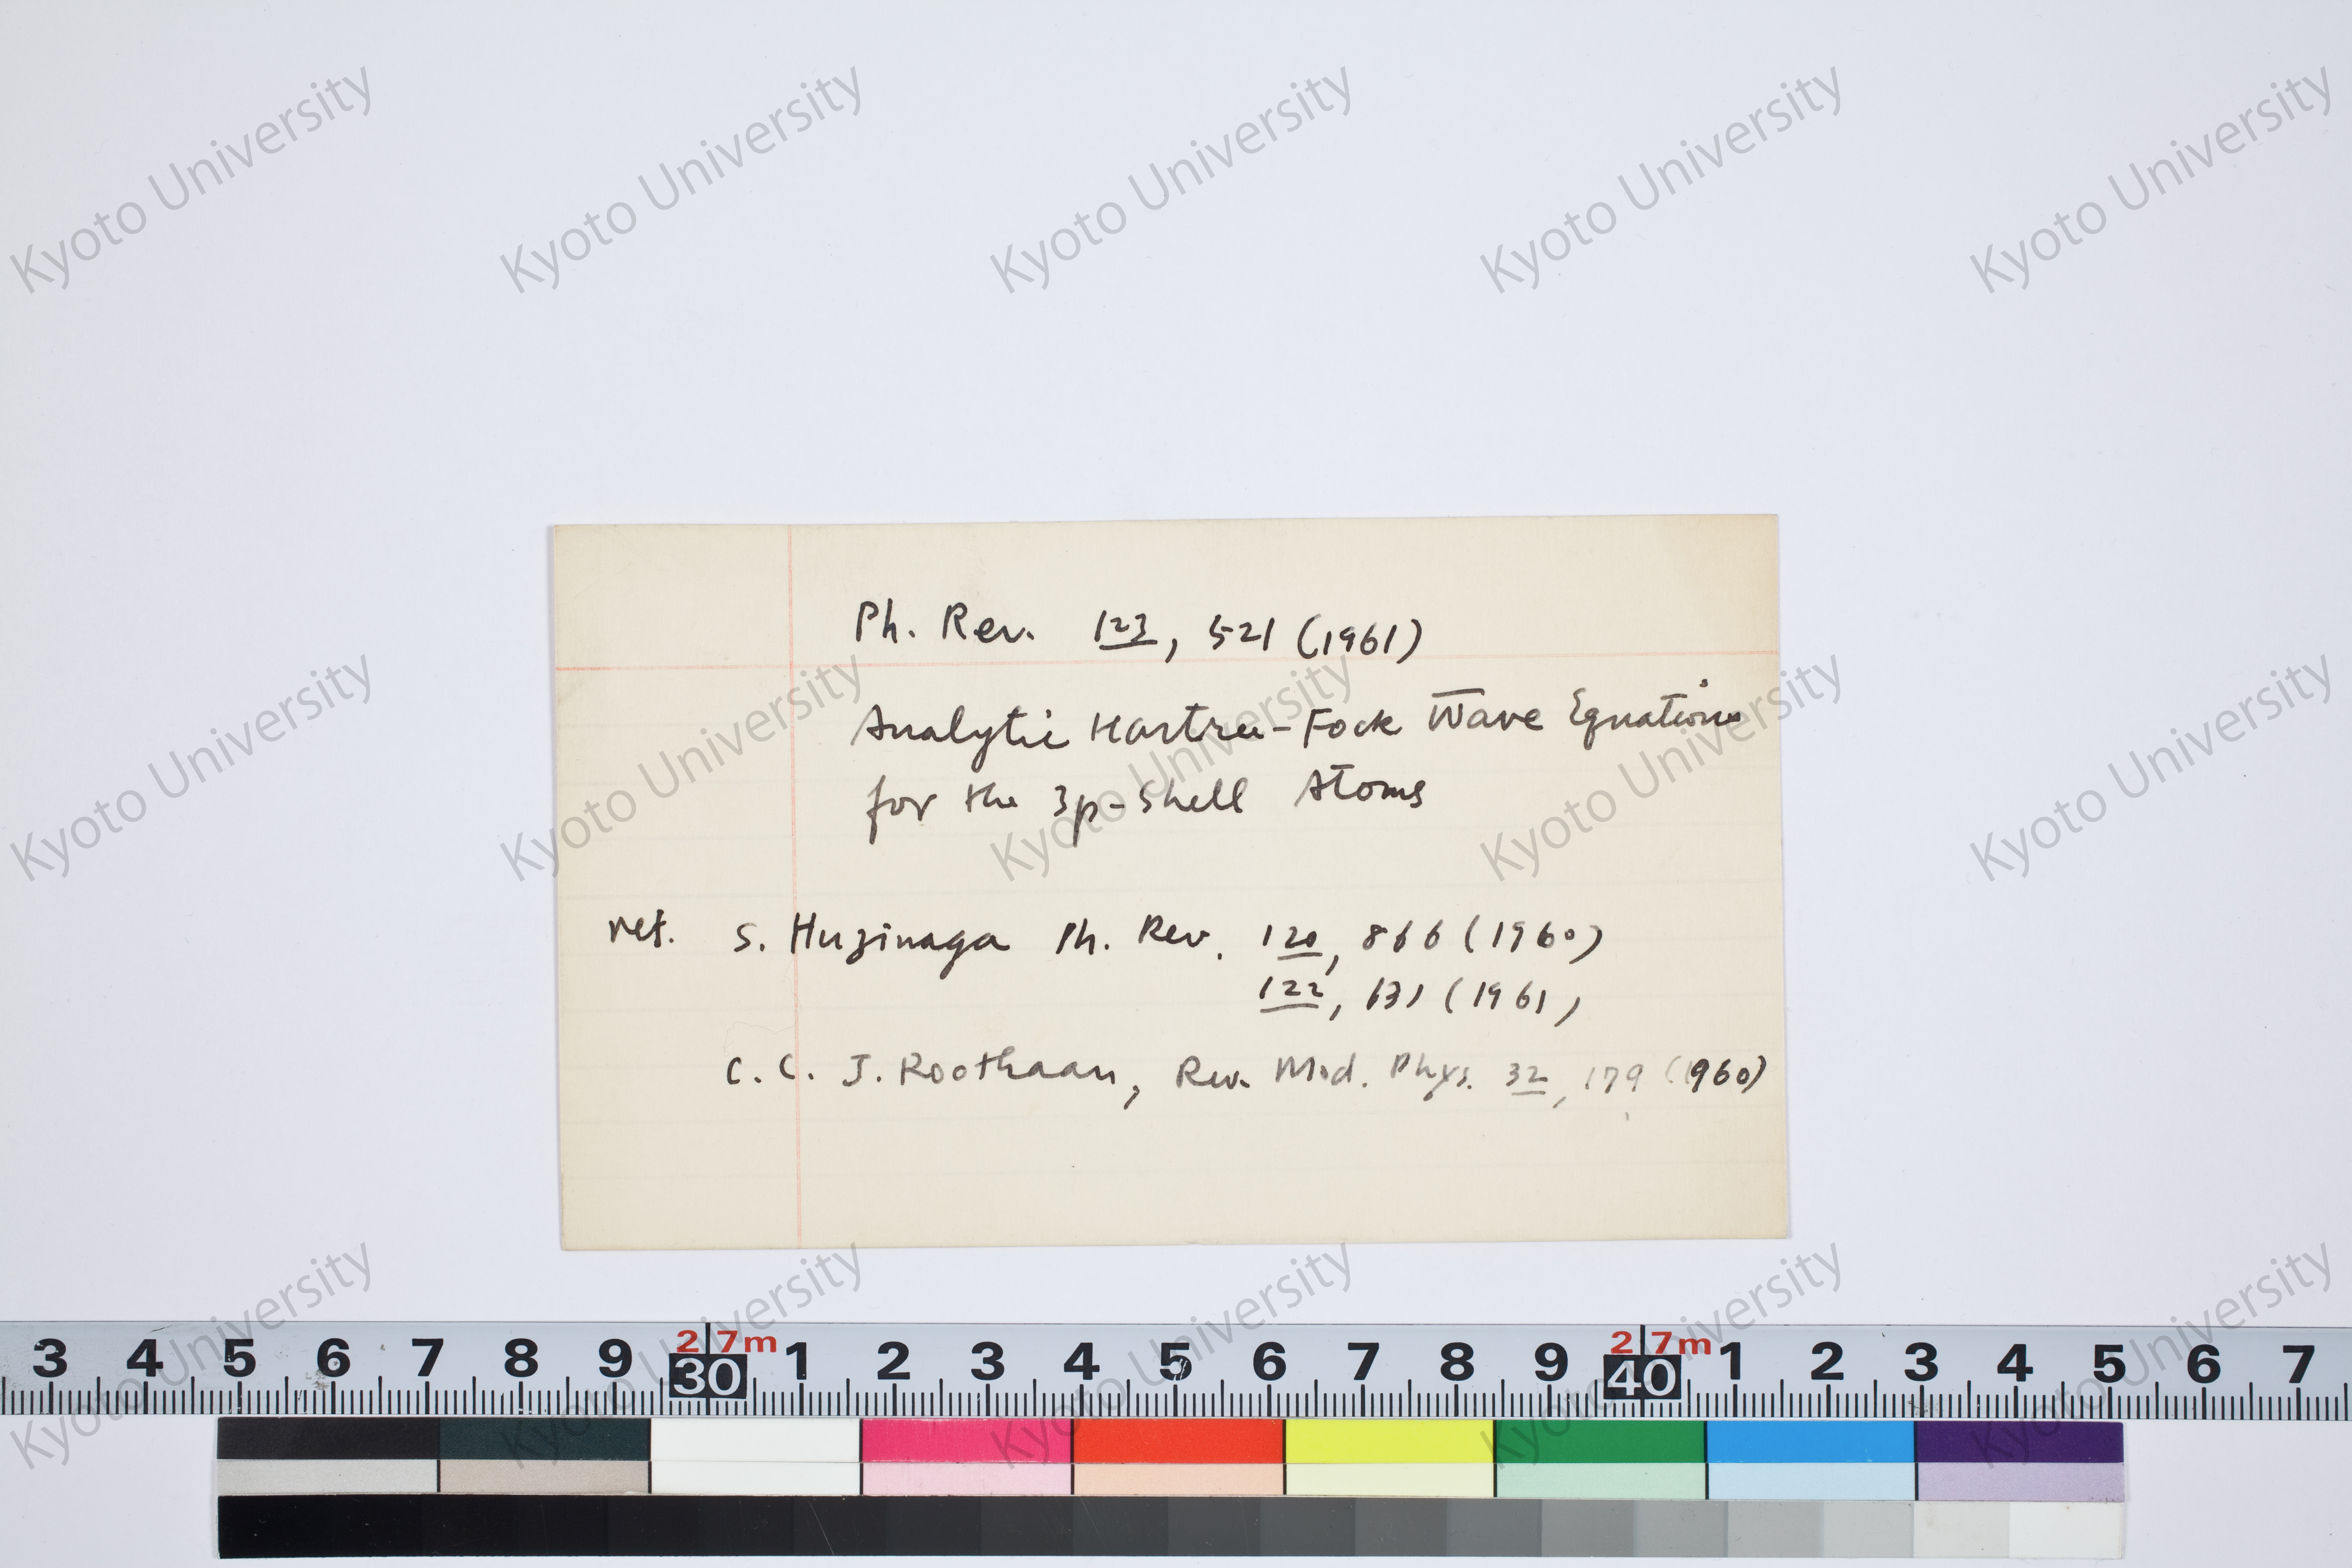 Ph. Rev. 123, 521 (1961)
Analytic Hartree-Fock Wave Equations
for the 3p-Shell Atoms
ref. S. Huzinaga Ph. Rev. 120, 866 (1960)
122, 131 (1961)
C. C. J. Roothaan, Rev. Mod. Phys. 32, 179 (1960)
3 4 5 6 7 8 9 30 1 2 3 4 5 6 7 8 9 40 1 2 3 4 5 6 7
2 7m 2 7m
Kyoto University Kyoto University Kyoto University Kyoto University Kyoto University
Kyoto University Kyoto University Kyoto University Kyoto University Kyoto University
Kyoto University Kyoto University Kyoto University Kyoto University Kyoto University